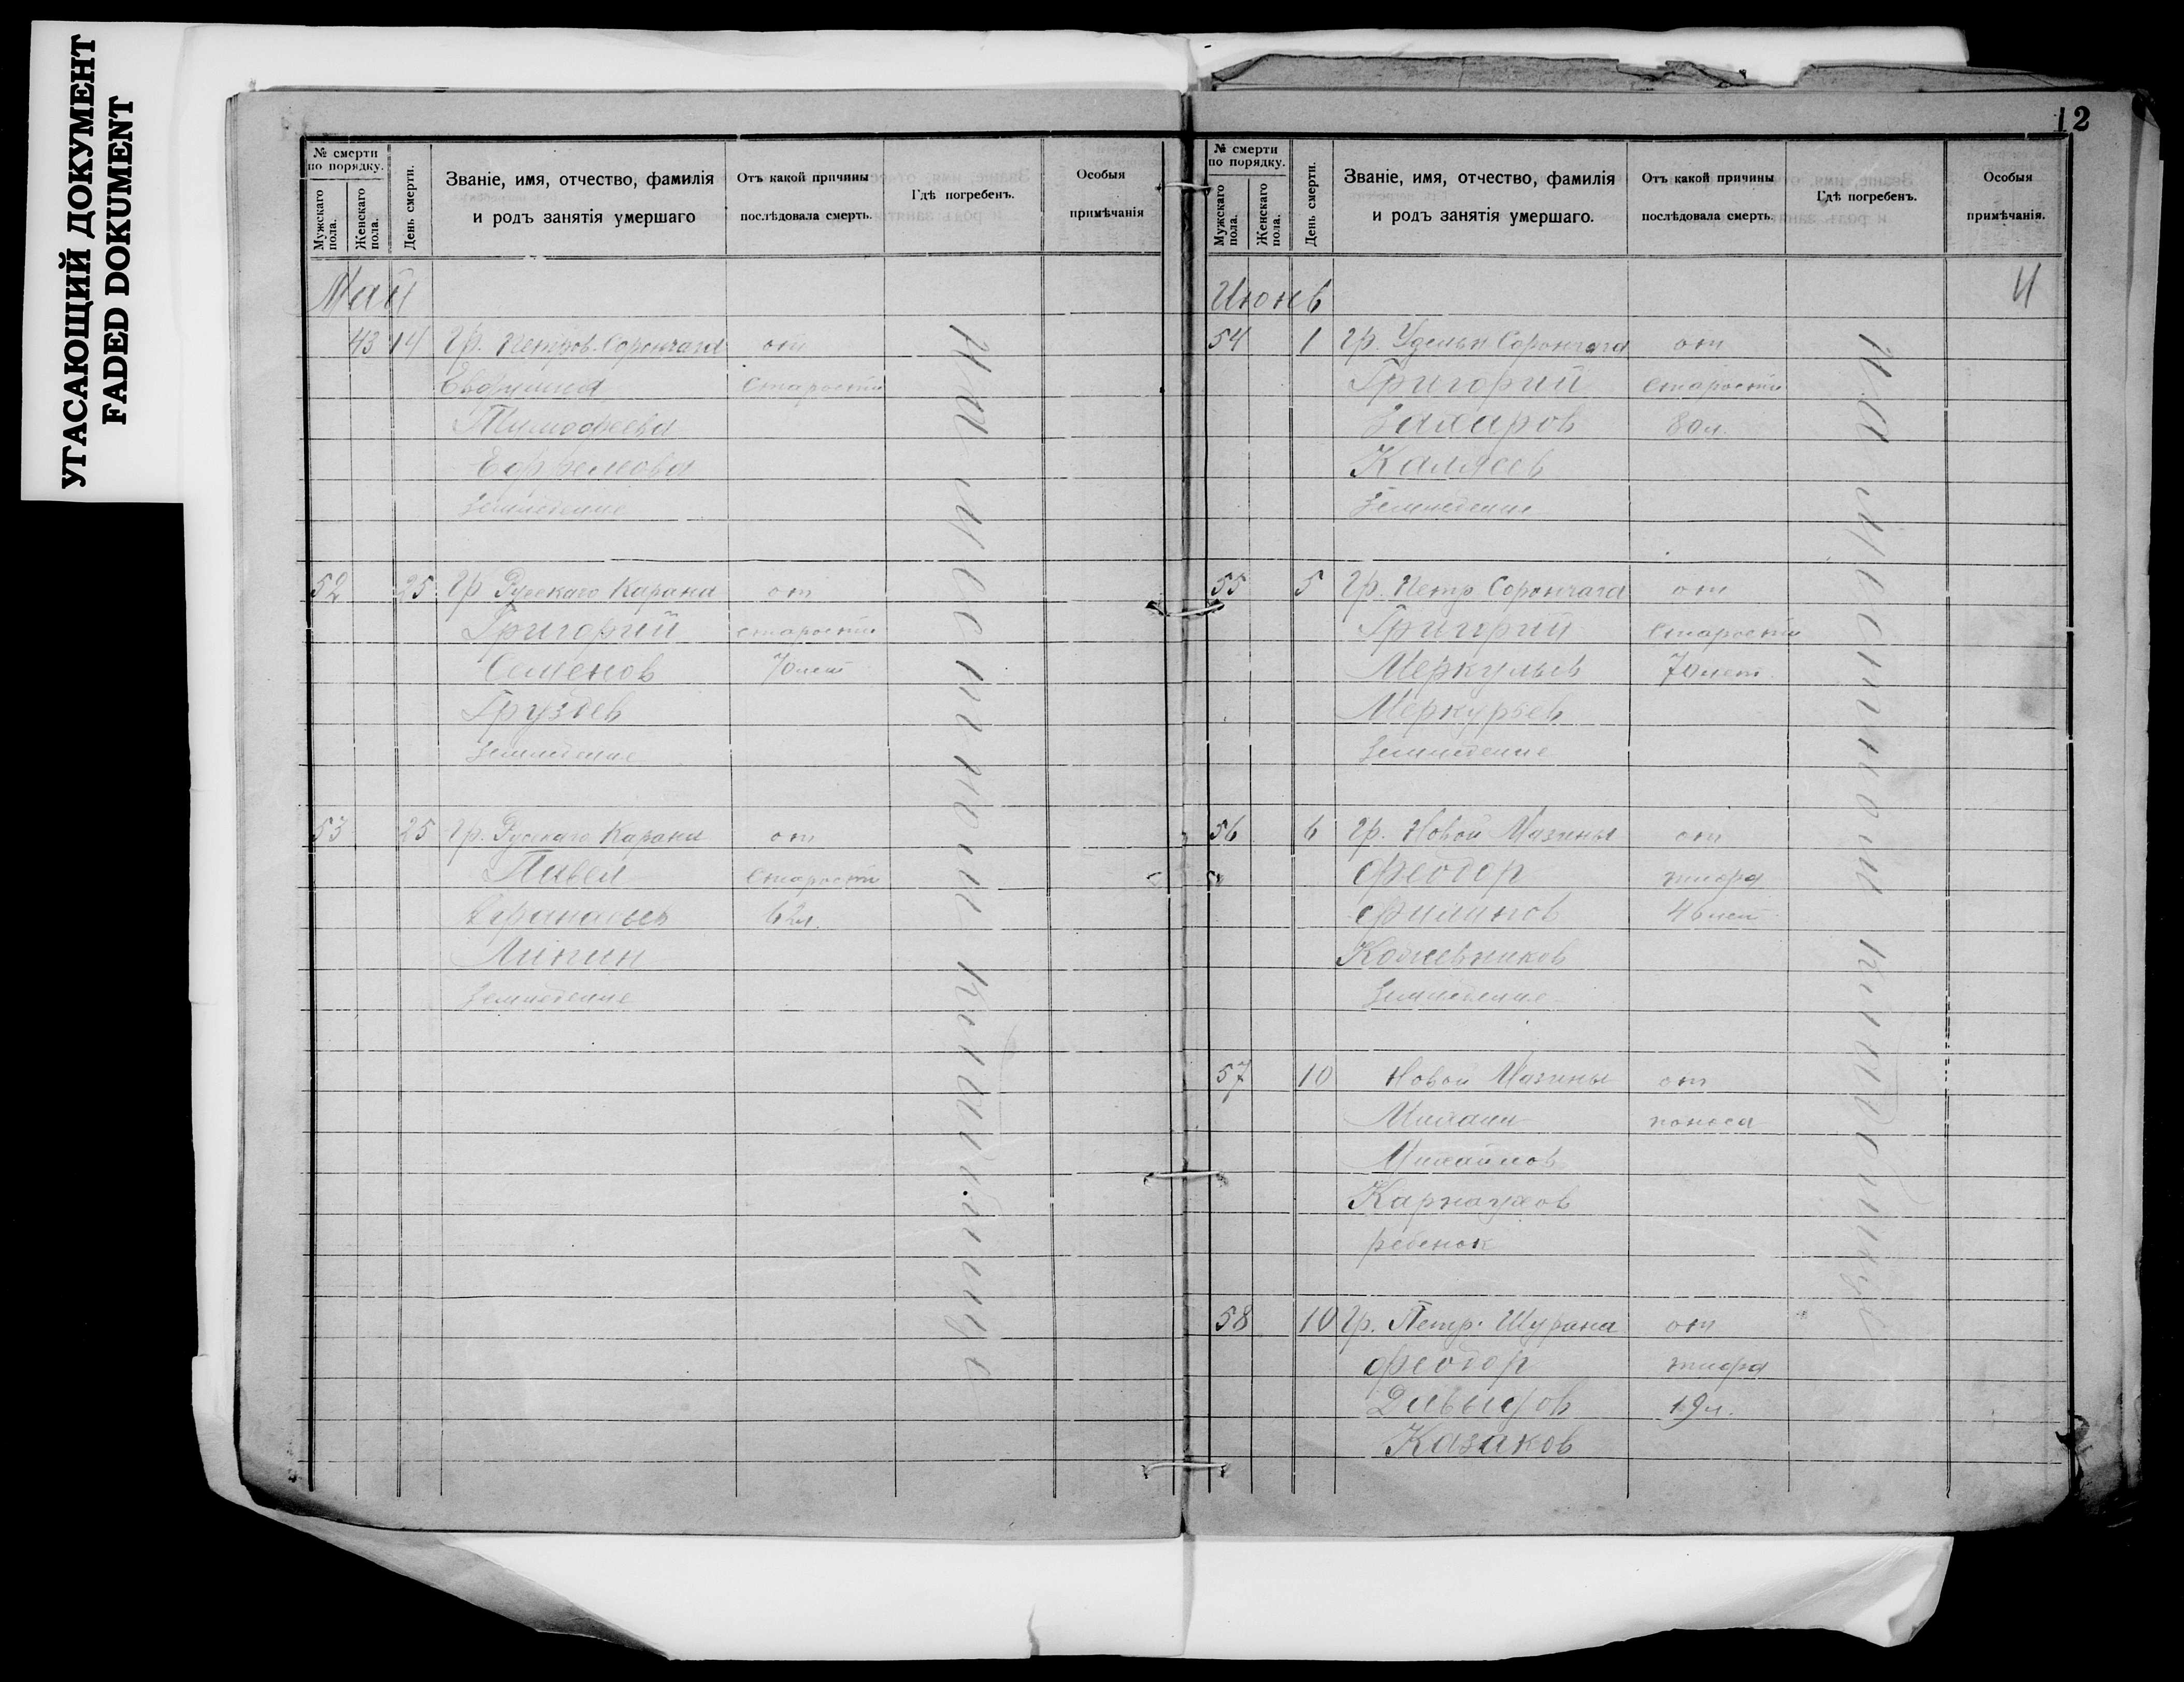 УГАСАЮЩИЙ ДОКУМЕНТ
FADED DOKUMENT
№ смерти по порядку.
Мужскаго пола.
Женскаго пола.
День смерти.
Званіе, имя, отчество, фамилія
и родъ занятія умершаго
Отъ какой причины
послѣдовала смерть.
Гдѣ погребенъ.
Особыя
примѣчанія
Май
43 14 Гр. Петров. Сорончага от
Евфимия старости
Тимофеева
Ефремова
Земледелие
52 25 Гр Русскаго Карана от
Григорий старости
Семенов 70 лет
Груздев
Земледелие
53 25 Гр. Русскаго Карана от
Павел старости
Афанасьев 62 л.
Липин
Земледелие
На местном кладбище
12
№ смерти по порядку.
Мужскаго пола.
Женскаго пола.
День смерти.
Званіе, имя, отчество, фамилія
и родъ занятія умершаго.
Отъ какой причины
послѣдовала смерть.
Гдѣ погребенъ.
Особыя
примѣчанія.
Июнь
54 1 Гр. Удельн Сорончага от
Григорий старости
Захаров 80 л.
Калясев
Земледелие
55 5 Гр. Петр Сорончага от
Григорий старости
Меркульев 70 лет
Меркурьев
Земледелие
56 6 Гр. Новой Мазины от
Феодор тифа
Филипов 46 лет
Кожевников
Земледелие
57 10 Новой Мазины от
Михаил поноса
Михайлов
Карнаухов
ребенок
58 10 Гр. Петр. Шурана от
Феодор тифа
Давыдов 19 л.
Казаков
На местном кладбище